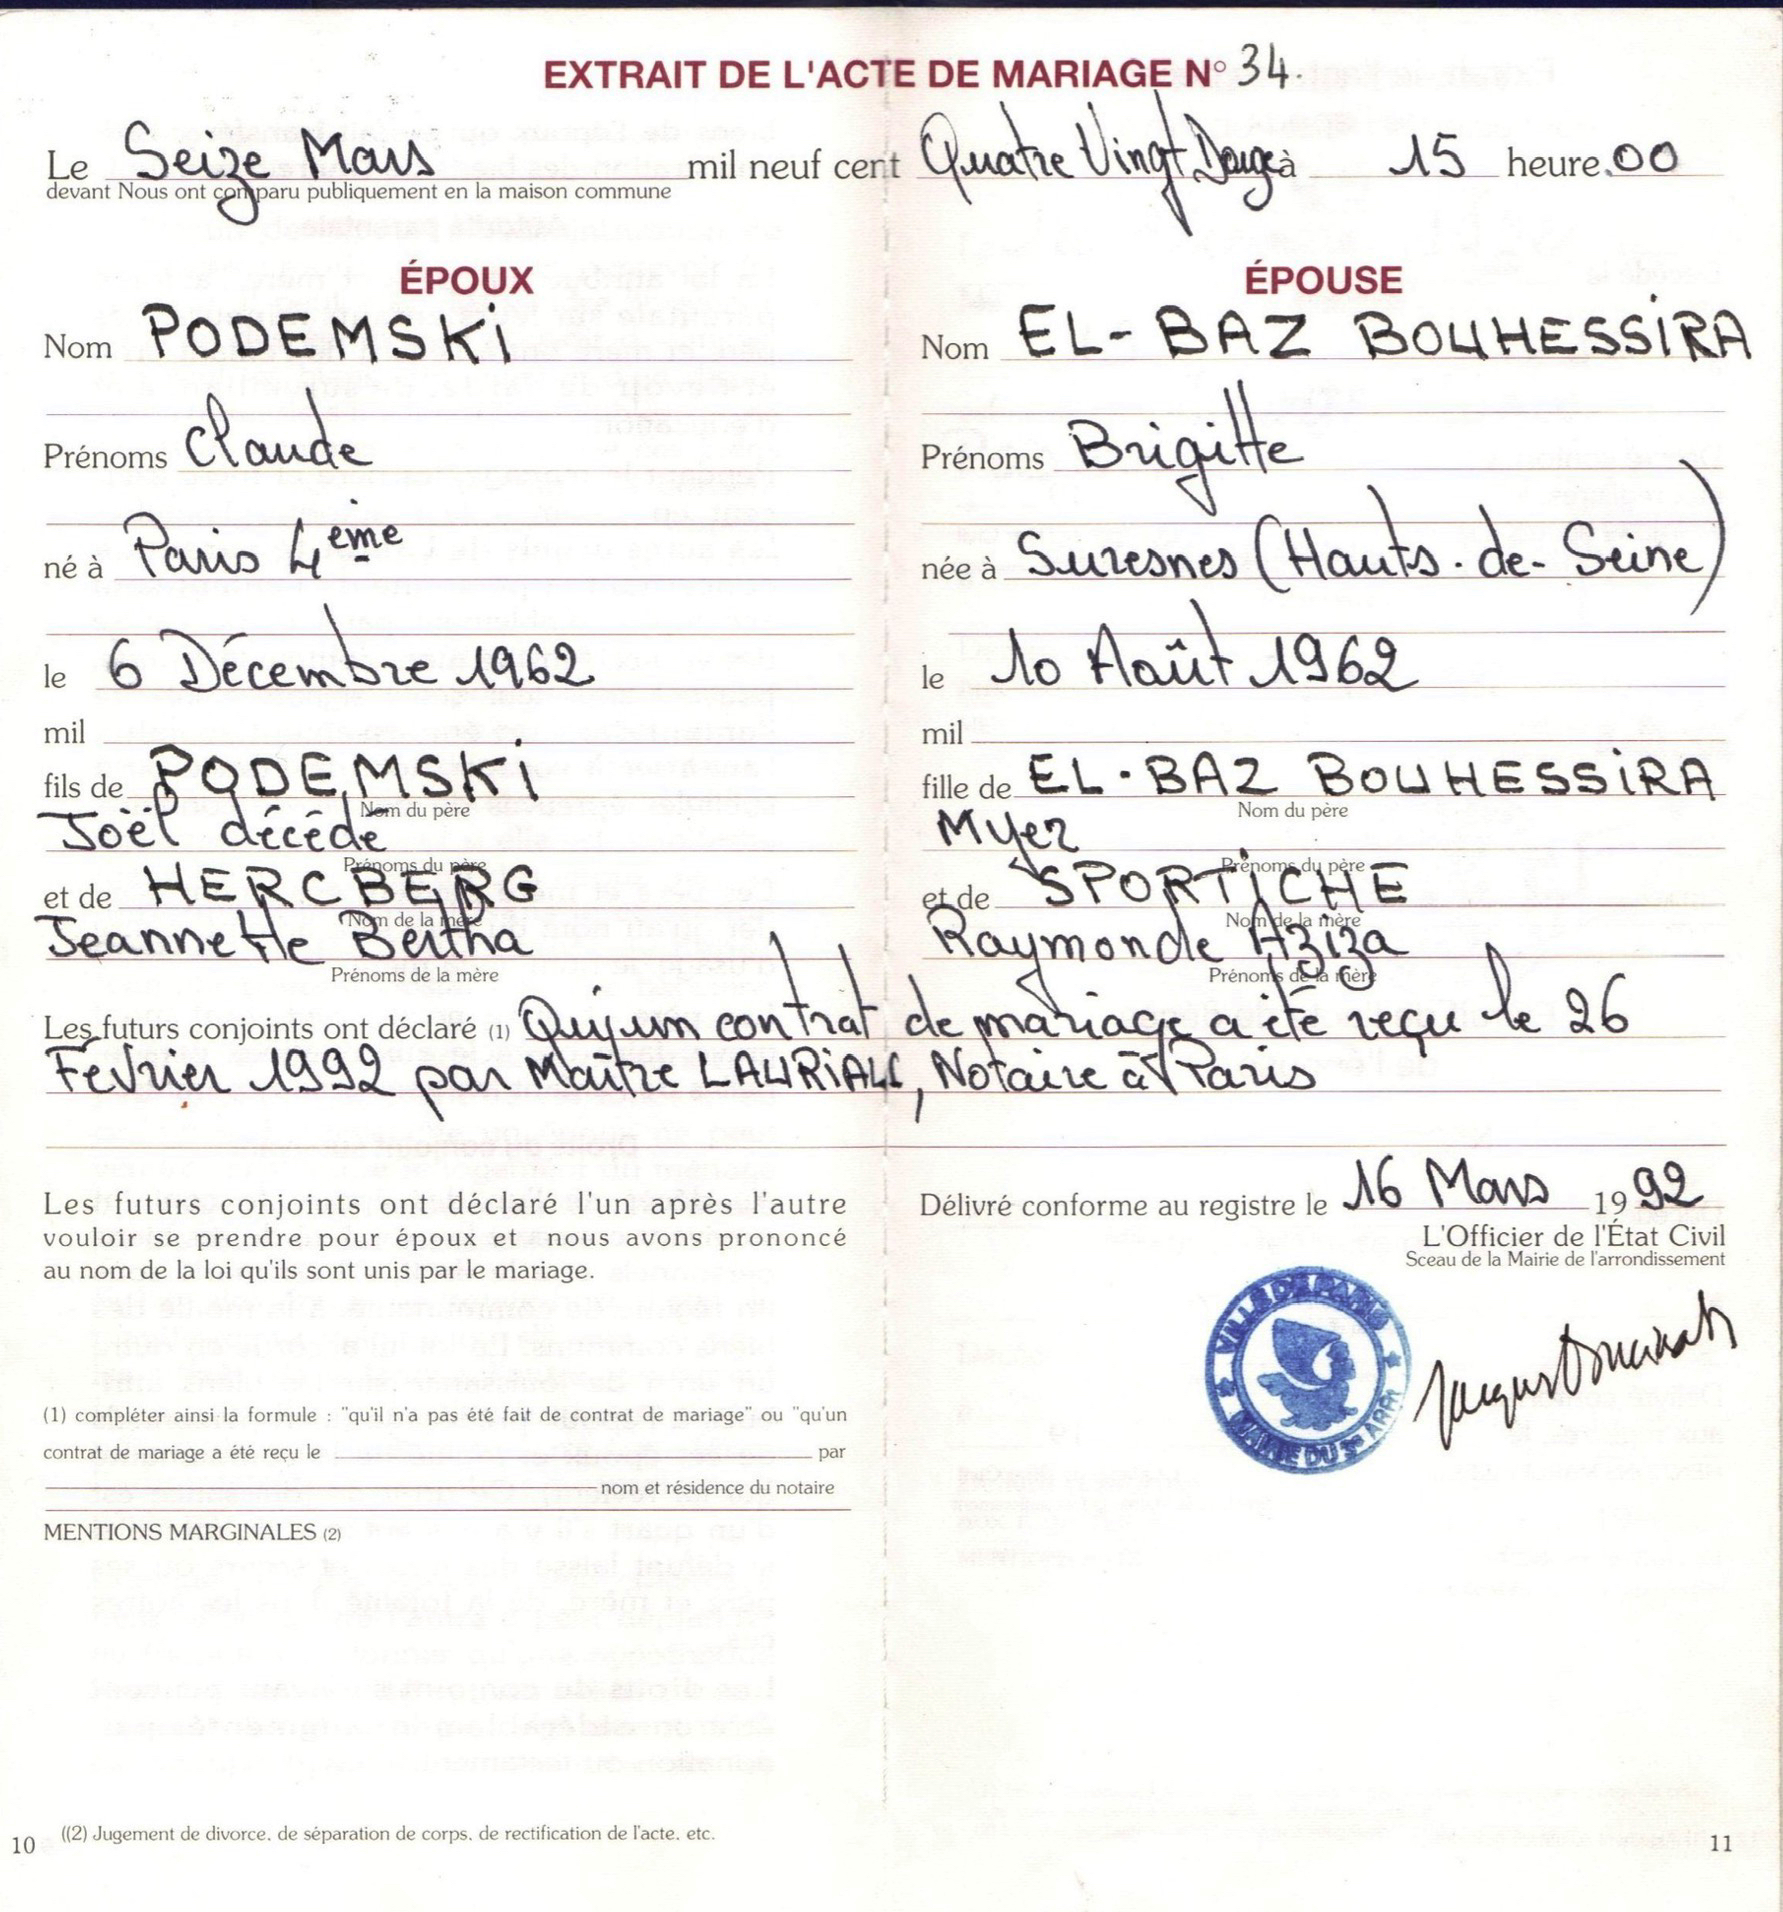 EXTRAIT DE L'ACTE DE MARIAGE N° 34.
Le Seize Mars mil neuf cent Quatre Vingt Douze à 15 heure.00
devant Nous ont comparu publiquement en la maison commune
ÉPOUX
Nom PODEMSKi
Prénoms Claude
né à Paris 4ème
le 6 Décembre 1962
mil
fils de PODEMSKi
Nom du père
Joël décédé
Prénoms du père
et de HERCBERG
Nom de la mère
Jeannette Bertha
Prénoms de la mère
ÉPOUSE
Nom EL-BAZ BOUHESSiRA
Prénoms Brigitte
née à Suresnes (Hauts-de-Seine)
le 10 Août 1962
mil
fille de EL-BAZ BOUHESSiRA
Nom du père
Myer
Prénoms du père
et de SPORTiCHE
Nom de la mère
Raymonde Aziza
Prénoms de la mère
Les futurs conjoints ont déclaré (1) Qu'un contrat de mariage a été reçu le 26
Février 1992 par Maître LAURiAU, Notaire à Paris
Les futurs conjoints ont déclaré l'un après l'autre
vouloir se prendre pour époux et nous avons prononcé
au nom de la loi qu'ils sont unis par le mariage.
(1) compléter ainsi la formule : "qu'il n'a pas été fait de contrat de mariage" ou "qu'un
contrat de mariage a été reçu le par
nom et résidence du notaire
MENTIONS MARGINALES (2)
((2) Jugement de divorce, de séparation de corps, de rectification de l'acte, etc.
10
Délivré conforme au registre le 16 Mars 1992
L'Officier de l'État Civil
Sceau de la Mairie de l'arrondissement
VILLE DE PARIS
MAIRIE DU 3e ARRt
11